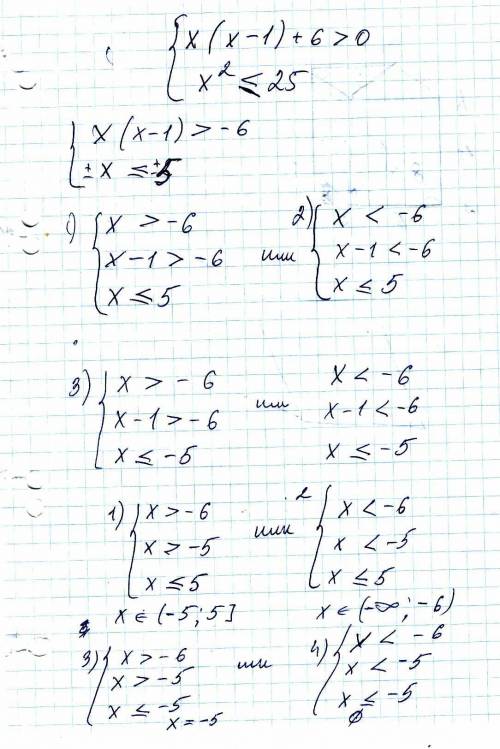 x(x-1)+6>0
x² ≤ 25
x(x-1) > -6
± x ≤ ± 5
1) x > -6
x-1 > -6
x ≤ 5
или
2) x < -6
x-1 < -6
x ≤ 5
3) x > -6
x-1 > -6
x ≤ -5
или
x < -6
x-1 < -6
x ≤ -5
1) x > -6
x > -5
x ≤ 5
x ∈ (-5; 5]
или
2 x < -6
x < -5
x ≤ 5
x ∈ (-∞; -6)
3) x > -6
x > -5
x ≤ -5
x = -5
или
4) x < -6
x < -5
x ≤ -5
∅